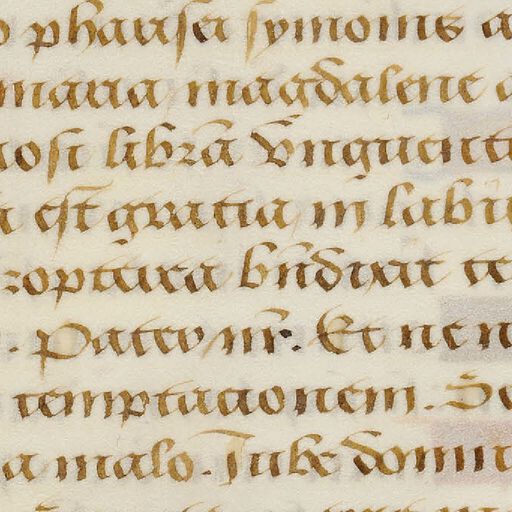 pharisei symonis
maria magdalene
libram unguenti
est gratia in labii
propterea bn̄dixit te
. Pater nr̄. Et ne n
temptationem. Se
a malo. Jube domn